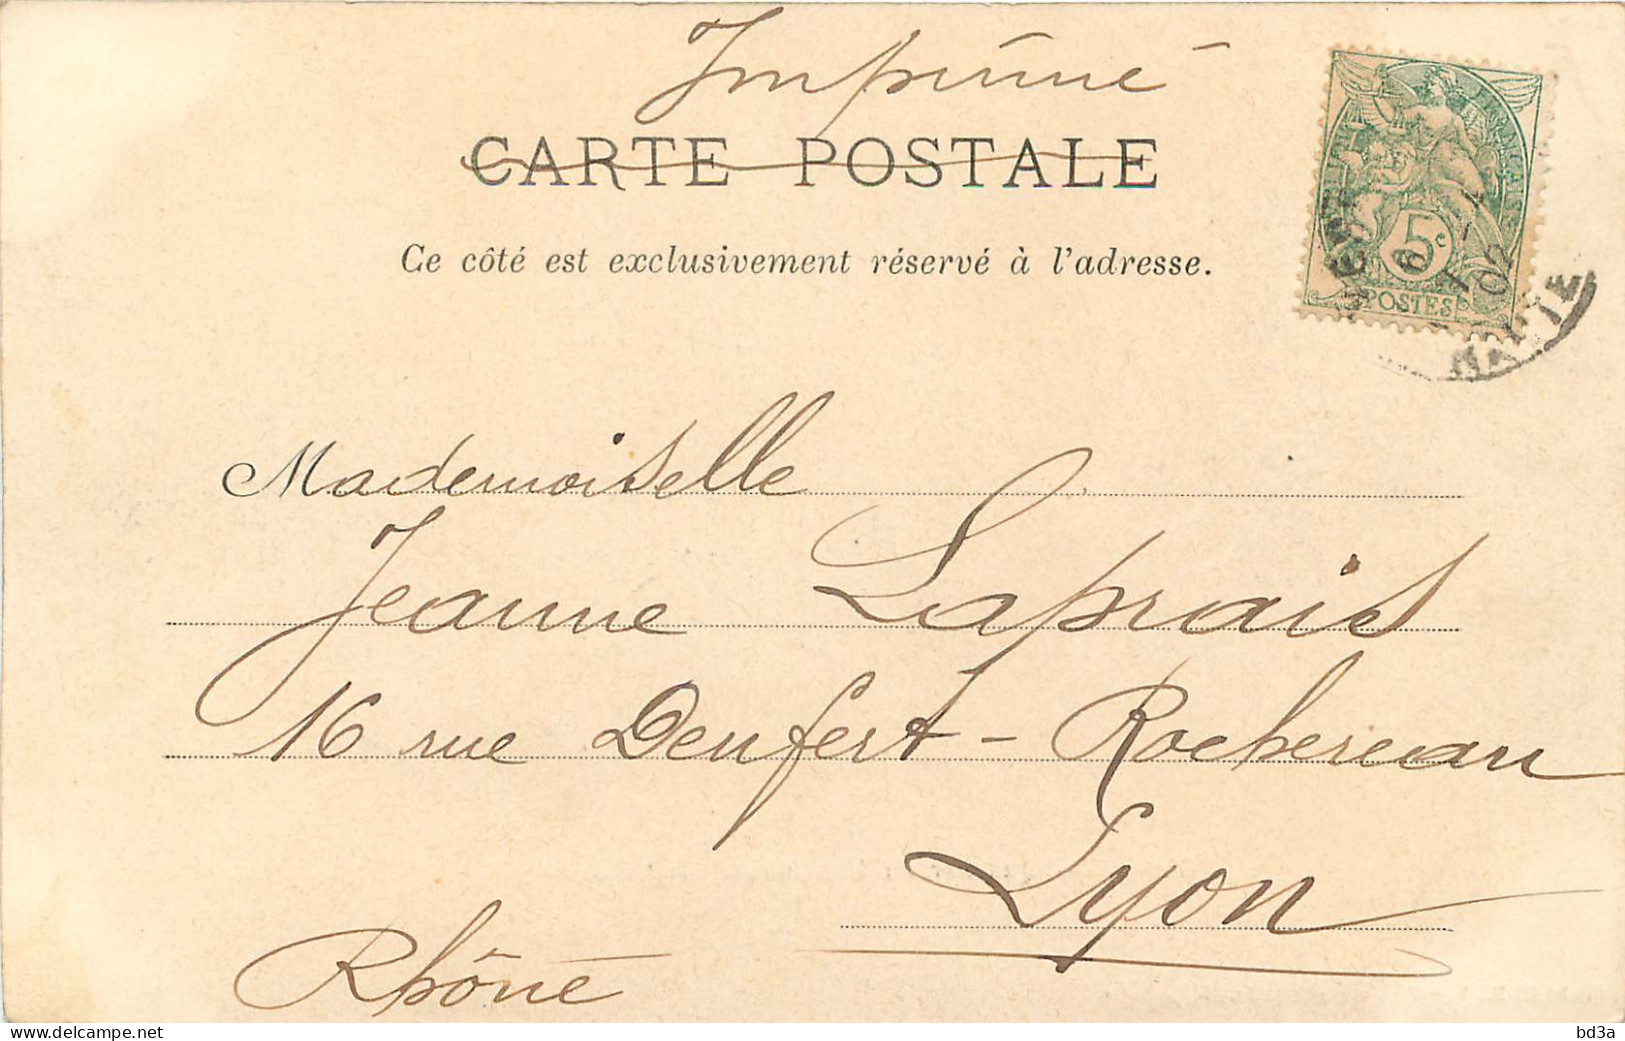 Imprimé
CARTE POSTALE
Ce côté est exclusivement réservé à l'adresse.
5c
POSTES
02
Mademoiselle
Jeanne Laprais
16 rue Denfert-Rochereau
Lyon
Rhône
delcampe.net
bd3a